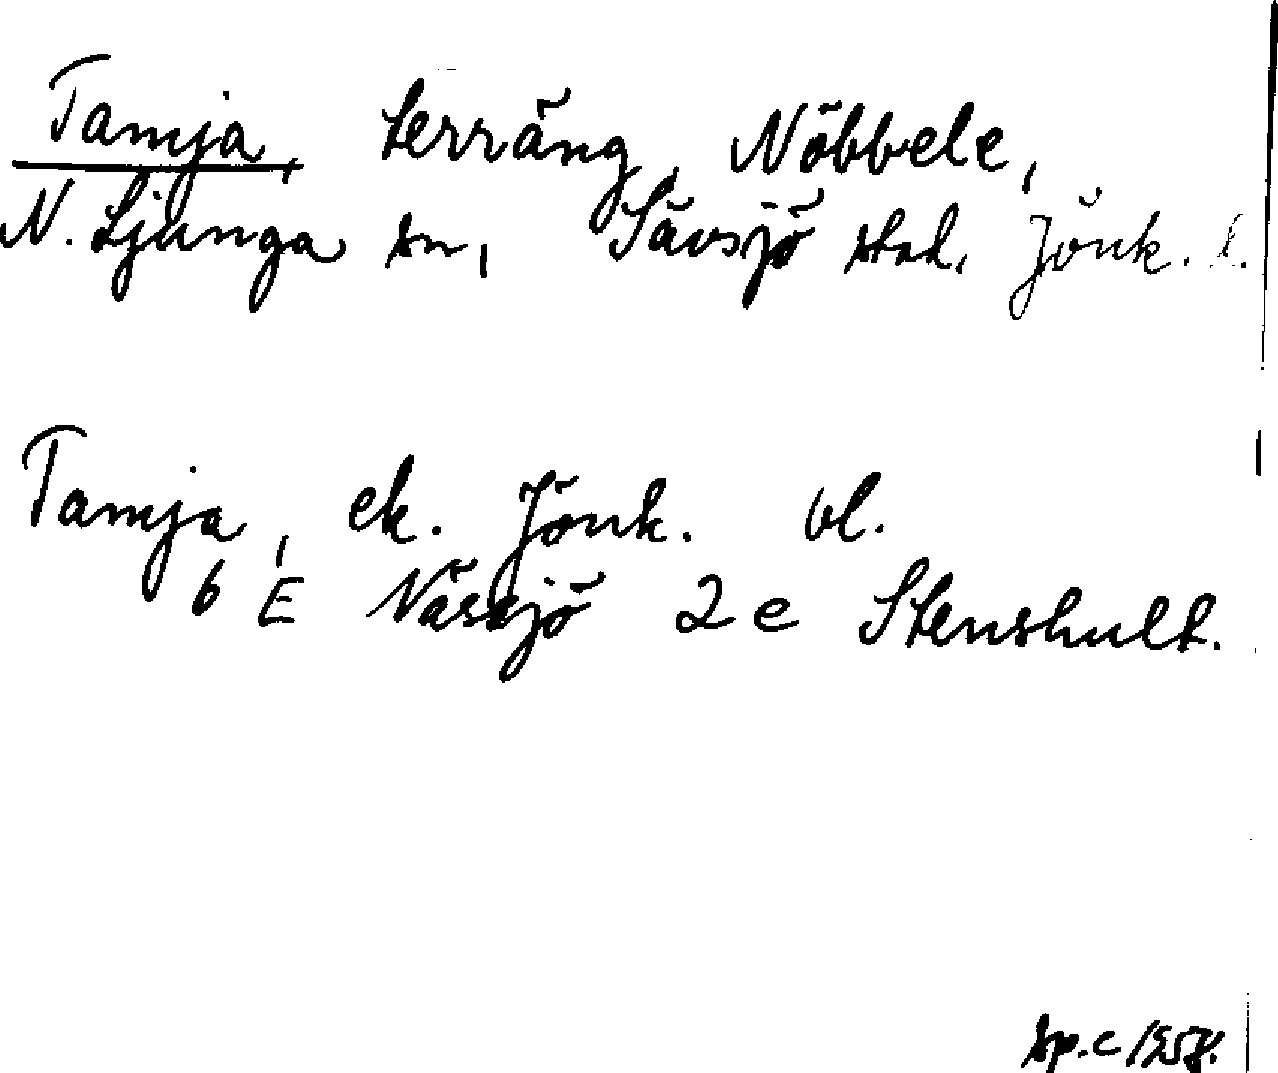 Tamja, terräng, Nöbbele,
N. Ljunga sn, Sävsjö stad, Jönk. l.
Tamja, ek. Jönk. bl.
6 E Nässjö 2 e Stenshult.